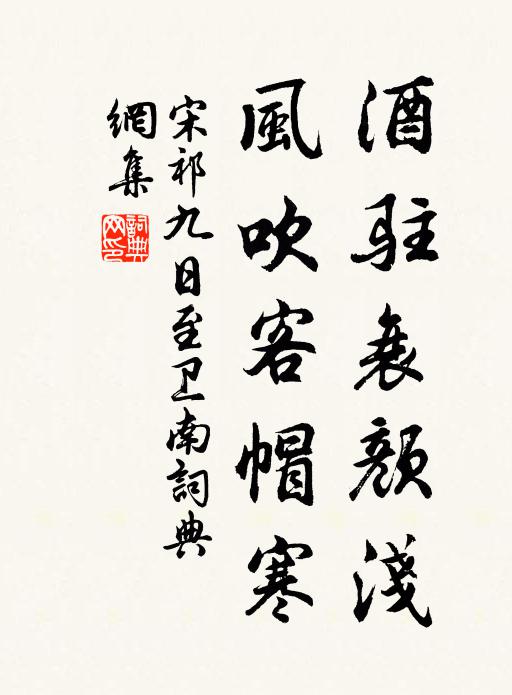 酒駐衰顏淺
風吹客帽寒
宋祁九日至卫南詞典
網集
詞典网印